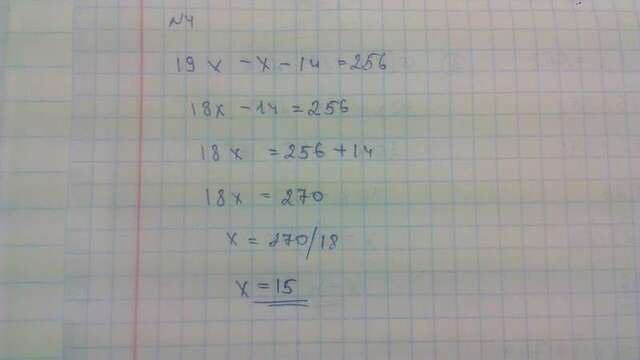 №4
19x - x - 14 = 256
18x - 14 = 256
18x = 256 + 14
18x = 270
x = 270/18
x = 15